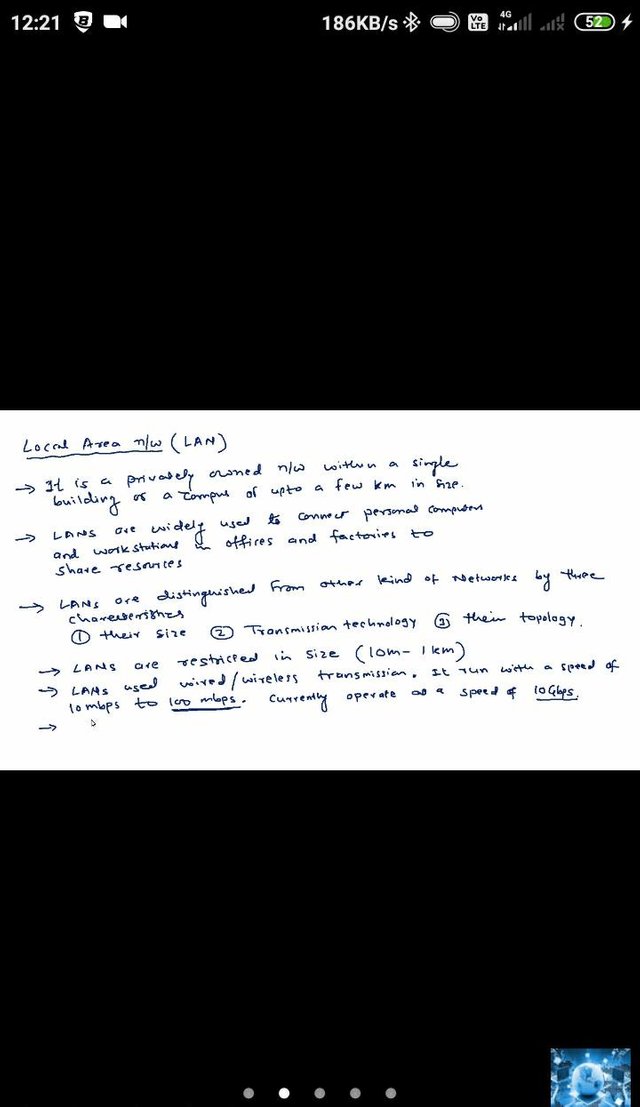 12:21 186KB/s Vo LTE 4G 52
Local Area n/w (LAN)
→ It is a privately owned n/w within a single
building or a campus of upto a few km in size.
→ LANs are widely used to connect personal computers
and workstations in offices and factories to
share resources
→ LANs are distinguished from other kind of Networks by three
characteristics
① their size ② Transmission technology ③ their topology.
→ LANs are restricted in size (10m - 1km)
→ LANs used wired/wireless transmission. It run with a speed of
10 mbps to 100 mbps. Currently operate at a speed of 10Gbps.
→